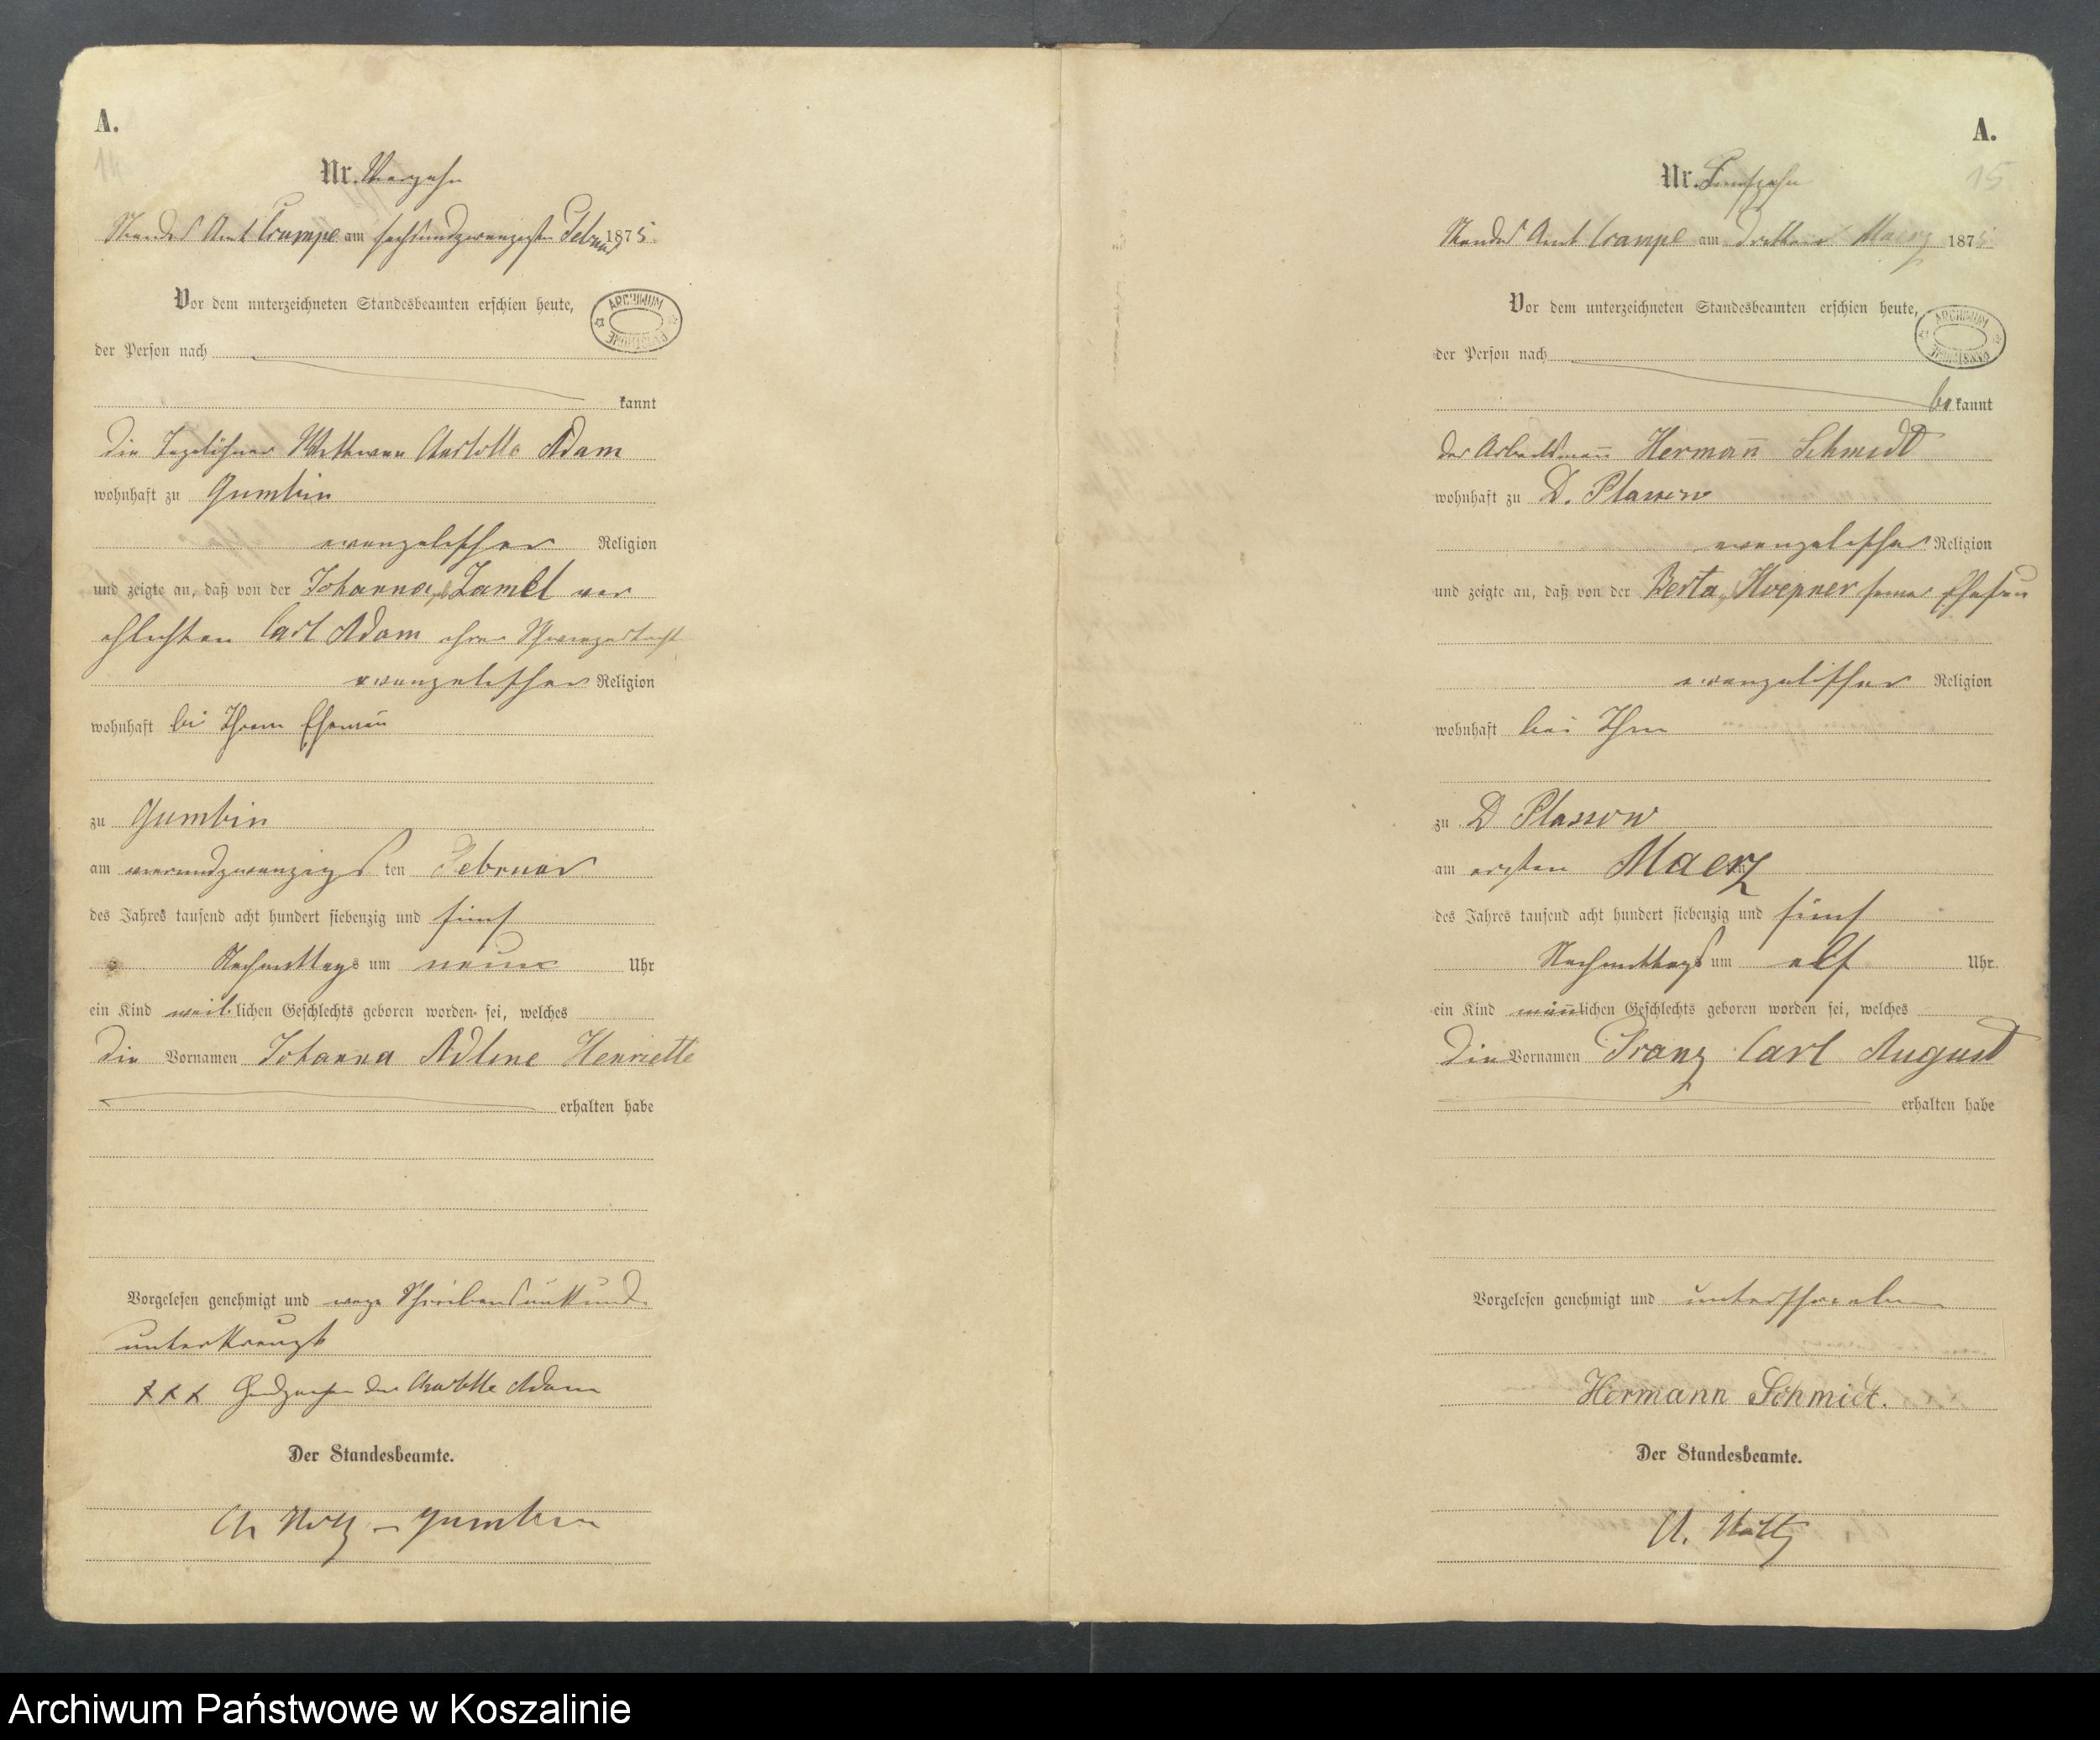 A.
14
Nr. Vierzehn
Standes Amt Crampe am sechsundzwanzigsten Februar 1875.
Vor dem unterzeichneten Standesbeamten erschien heute,
ARCHIWUM PAŃSTWOWE
der Person nach
kannt
die Tagelöhner Wittwe Charlotte Adam
wohnhaft zu Gumbin
evangelischer Religion
und zeigte an, daß von der Johanna, Zamel ver
ehlichten Carl Adam ihrer Schwiegertocht
evangelischer Religion
wohnhaft bei Ihrem Ehemañ
zu Gumbin
am vierundzwanzigsten Februar
des Jahres tausend acht hundert siebenzig und fünf
Nachmittags um neun Uhr
ein Kind weiblichen Geschlechts geboren worden sei, welches
die Vornamen Johanna Adline Henriette
erhalten habe
Vorgelesen genehmigt und wegen Schreibensunkunde
unterkreuzt
x x x Handzeichen der Charlotte Adam
Der Standesbeamte.
Noltz - Gumbin
A.
15
Nr. Fünfzehn
Standes Amt Crampe am dritten Maerz 1875
Vor dem unterzeichneten Standesbeamten erschien heute,
ARCHIWUM PAŃSTWOWE
der Person nach
bekannt
der Arbeitsmañ Hermañ Schmidt
wohnhaft zu D. Plassow
evangelischer Religion
und zeigte an, daß von der Berta, Hoepner seiner Ehefrau
evangelischer Religion
wohnhaft bei Ihm
zu D Plassow
am ersten Maerz
des Jahres tausend acht hundert siebenzig und fünf
Nachmittags um elf Uhr
ein Kind mäñlichen Geschlechts geboren worden sei, welches
die Vornamen Franz Carl August
erhalten habe
Vorgelesen genehmigt und unterschrieben
Hermann Schmidt.
Der Standesbeamte.
Noltz
Archiwum Państwowe w Koszalinie